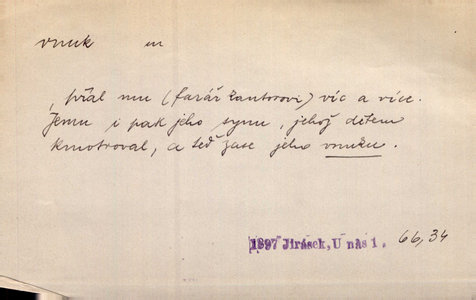 vnuk m
, přál mu (farář kantorovi) víc a více.
Jemu i pak jeho synu, jehož dětem
kmotroval, a teď zase jeho vnuku.
1897 Jirásek, U nás 1. 66, 34